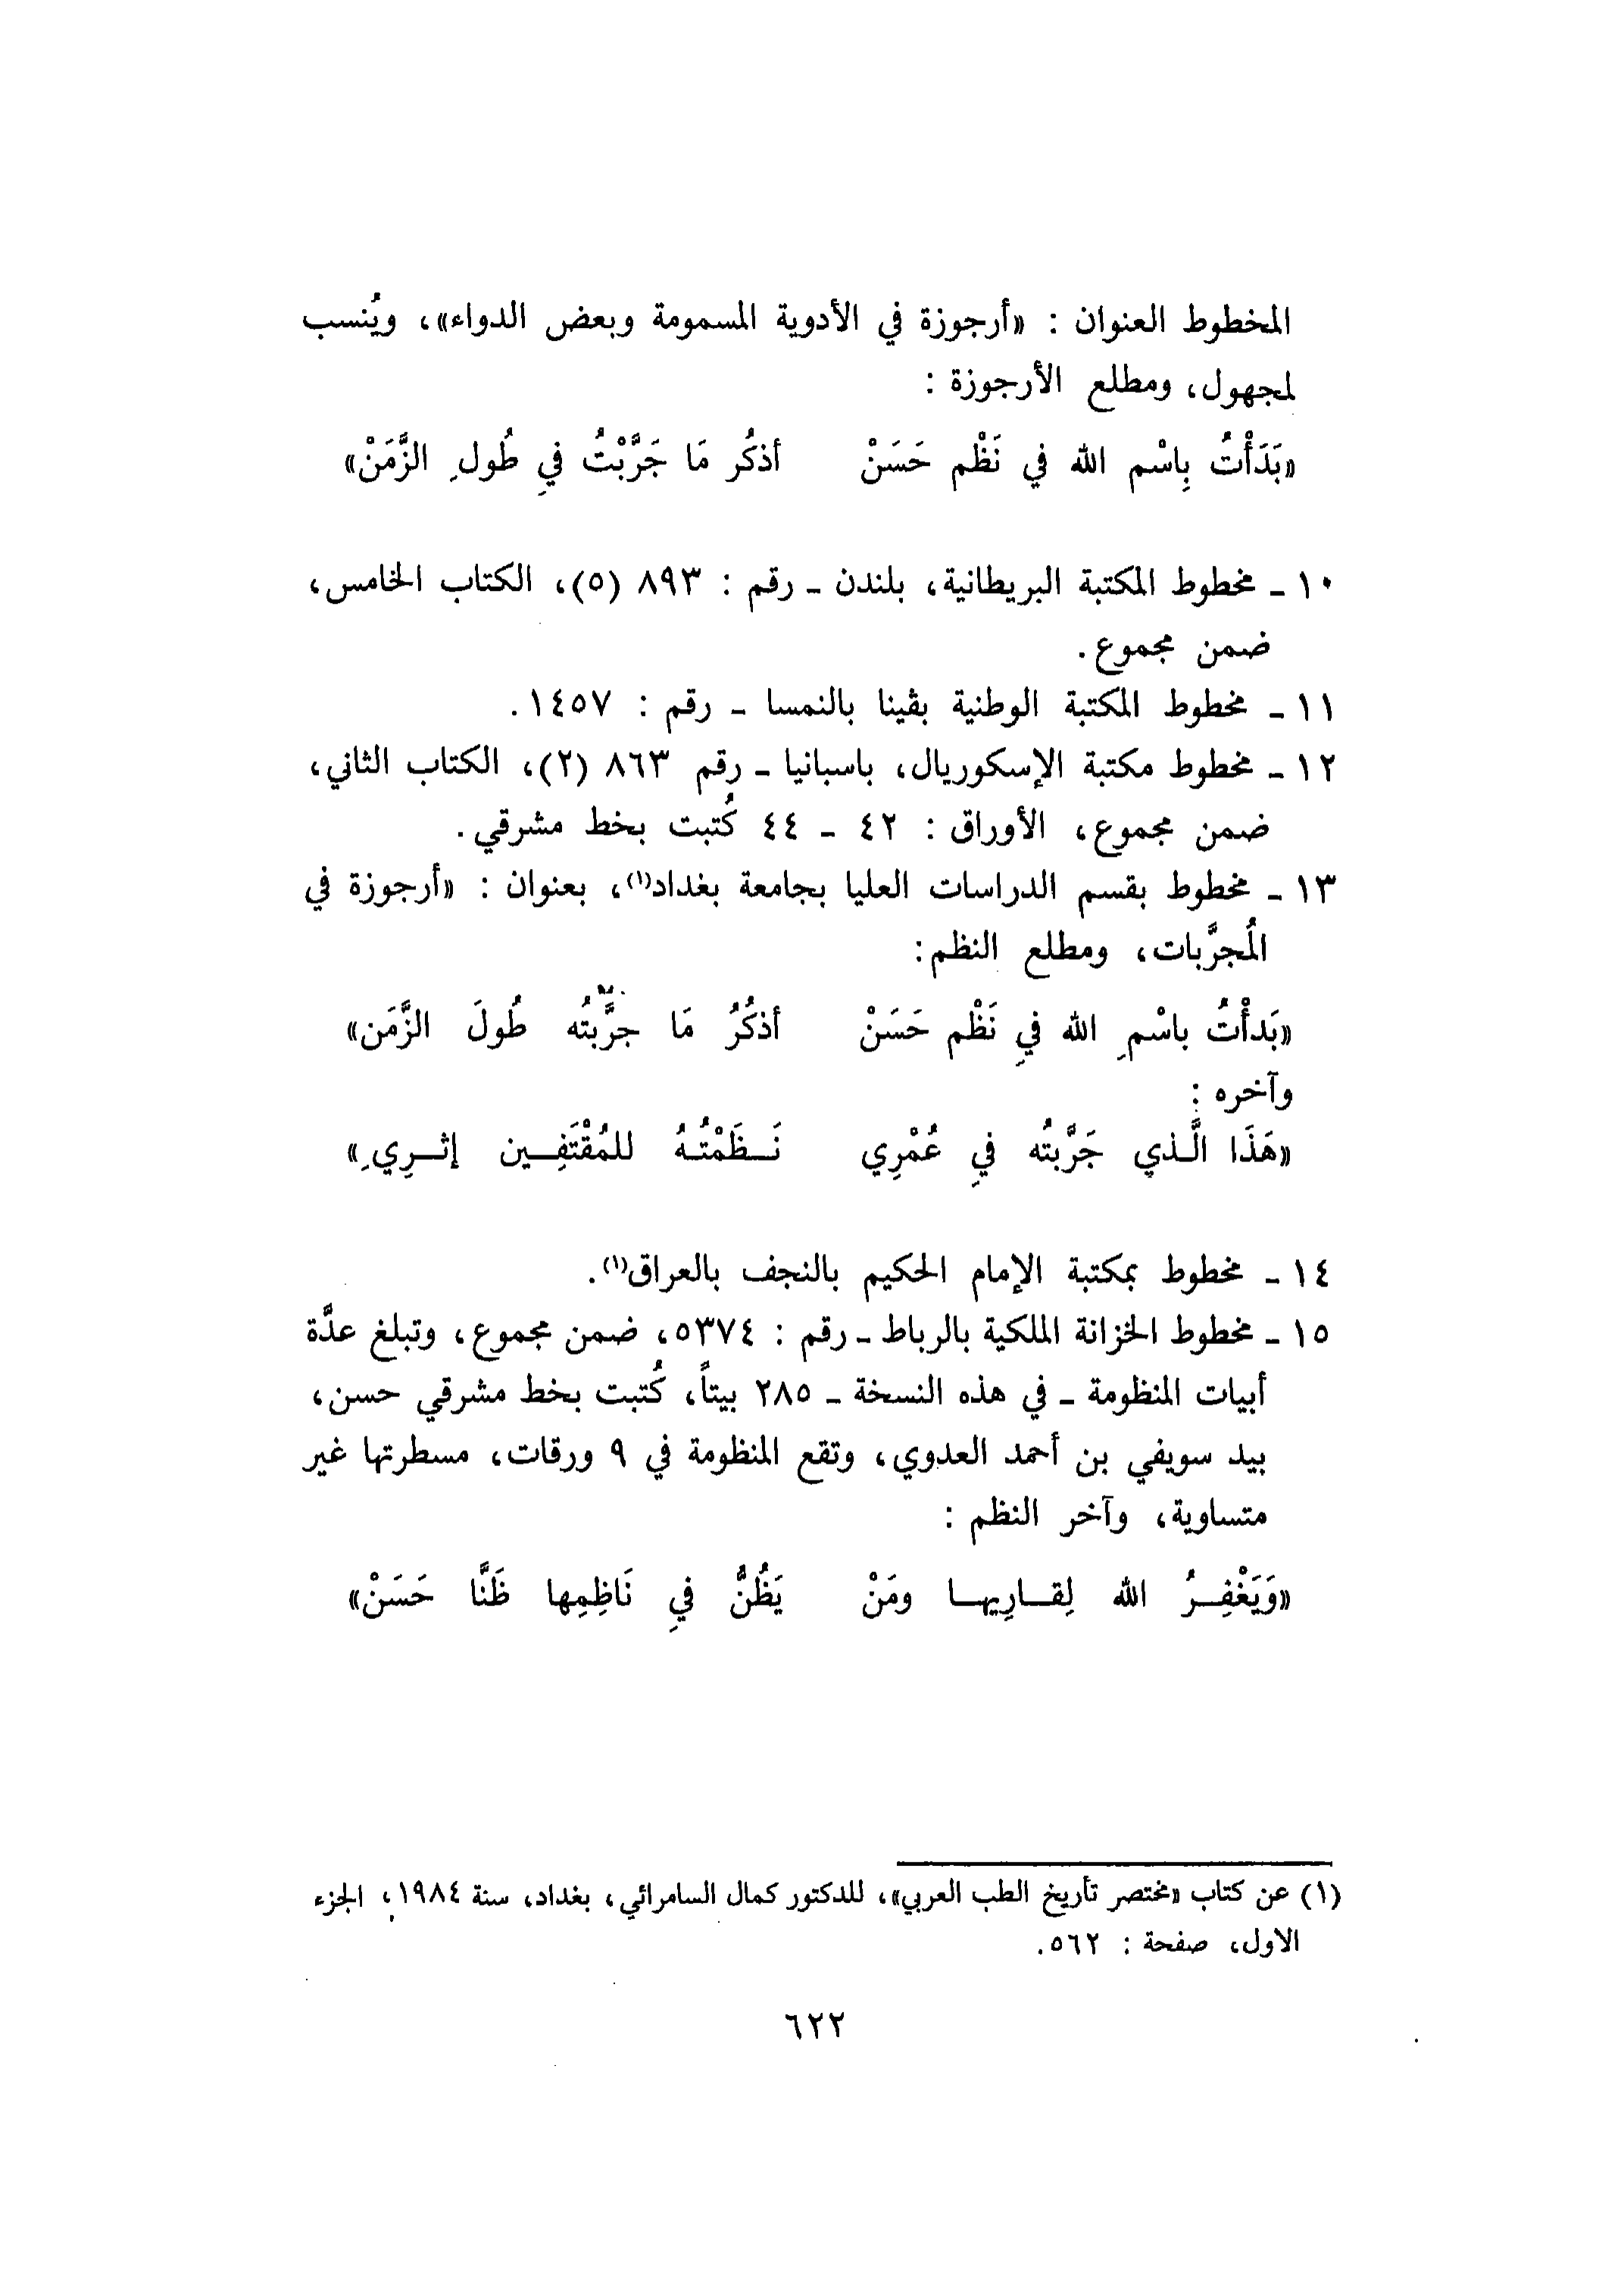 المخطوط العنوان : «أرجوزة في الأدوية المسمومة وبعض الدواء»، ويُنسب
لمجهول، ومطلع الأرجوزة :
«بَدَأْتُ بِاسْم الله في نَظْم حَسَنْ أذكُر مَا جَرَّبْتُ فيِ طُولِ الزَّمَنْ»
١٠ ـ مخطوط المكتبة البريطانية، بلندن ـ رقم : ٨٩٣ (٥)، الكتاب الخامس،
ضمن مجموع .
١١ ـ مخطوط المكتبة الوطنية بڤينا بالنمسا ـ رقم : ١٤٥٧ .
١٢ ـ مخطوط مكتبة الإسكوريال، باسبانيا ـ رقم ٨٦٣ (٢)، الكتاب الثاني،
ضمن مجموع، الأوراق : ٤٢ ـ ٤٤ كُتبت بخط مشرقي .
١٣ ـ مخطوط بقسم الدراسات العليا بجامعة بغداد(١)، بعنوان : «أرجوزة في
المُجرَّبات، ومطلع النظم:
«بَدأْتُ باسْمِ الله فيِ نَظْم حَسَنْ أذكُرُ مَا جرَّبتُه طُولَ الزَّمَن»
وآخره :
«هَذَا الَّـذي جَرَّبتُه فيِ عُمْرِي نَـظَمْتُـهُ للمُقْتَفِـين إثـرِيِ»
١٤ ـ مخطوط بمكتبة الإمام الحكيم بالنجف بالعراق(١).
١٥ ـ مخطوط الخزانة الملكية بالرباط ـ رقم : ٥٣٧٤، ضمن مجموع، وتبلغ عدَّة
أبيات المنظومة ـ في هذه النسخة ـ ٢٨٥ بيتاً، كُتبت بخط مشرقي حسن،
بيد سويفي بن أحمد العدوي، وتقع المنظومة في ٩ ورقات، مسطرتها غير
متساوية، وآخر النظم :
«وَيَغْفِـرُ الله لِقـارِيهـا ومَنْ يَظُنُّ فيِ نَاظِمِها ظَنَّا حَسَنْ»
(١) عن كتاب «مختصر تأريخ الطب العربي»، للدكتور كمال السامرائي، بغداد، سنة ١٩٨٤، الجزء
الاول، صفحة : ٥٦٢.
٦٢٢